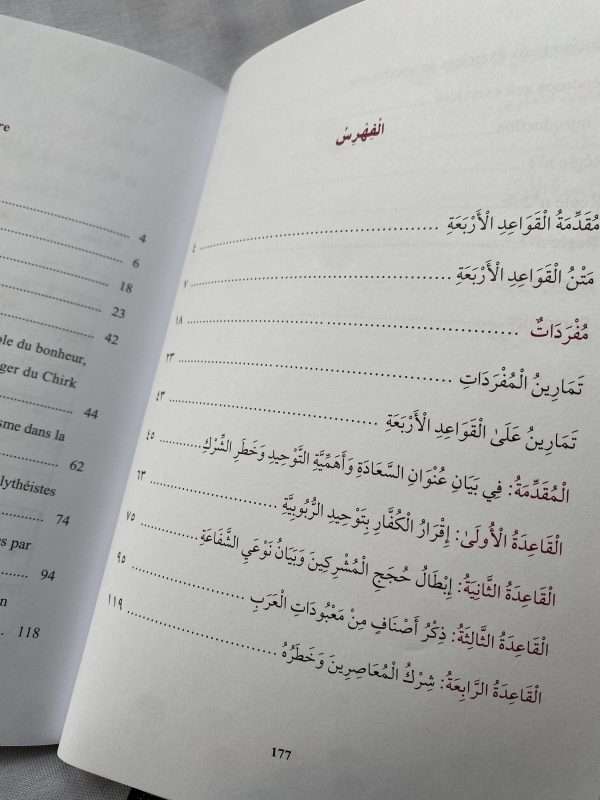 re
4
6
18
23
42
ole du bonheur,
ger du Chirk
44
sme dans la
62
lythéistes
74
es par
94
n
118
الْفِهْرِسُ
مُقَدِّمَةُ الْقَوَاعِدِ الْأَرْبَعَةِ ٤
مَتْنُ الْقَوَاعِدِ الْأَرْبَعَةِ ٧
مُفْرَدَاتٌ ١٨
تَمَارِينُ الْمُفْرَدَاتِ ٢٣
تَمَارِينُ عَلَىٰ الْقَوَاعِدِ الْأَرْبَعَةِ ٤٣
الْمُقَدِّمَةُ: فِي بَيَانِ عُنْوَانِ السَّعَادَةِ وَأَهَمِّيَّةِ التَّوْحِيدِ وَخَطَرِ الشِّرْكِ ٤٥
الْقَاعِدَةُ الْأُولَىٰ: إِقْرَارُ الْكُفَّارِ بِتَوْحِيدِ الرُّبُوبِيَّةِ ٦٣
الْقَاعِدَةُ الثَّانِيَةُ: إِبْطَالُ حُجَجِ الْمُشْرِكِينَ وَبَيَانُ نَوْعَيِ الشَّفَاعَةِ ٧٥
الْقَاعِدَةُ الثَّالِثَةُ: ذِكْرُ أَصْنَافٍ مِنْ مَعْبُودَاتِ الْعَرَبِ ٩٥
الْقَاعِدَةُ الرَّابِعَةُ: شِرْكُ الْمُعَاصِرِينَ وَخَطَرُهُ ١١٩
177